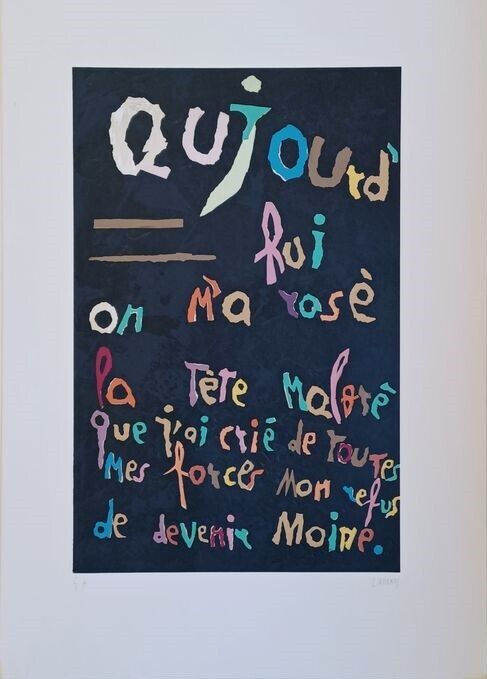 Qujourd'
hui
on m'a rasè
la Tète Malgrê
que j'ai crié de TouTes
Mes forces Mon refus
de devenir Moine.